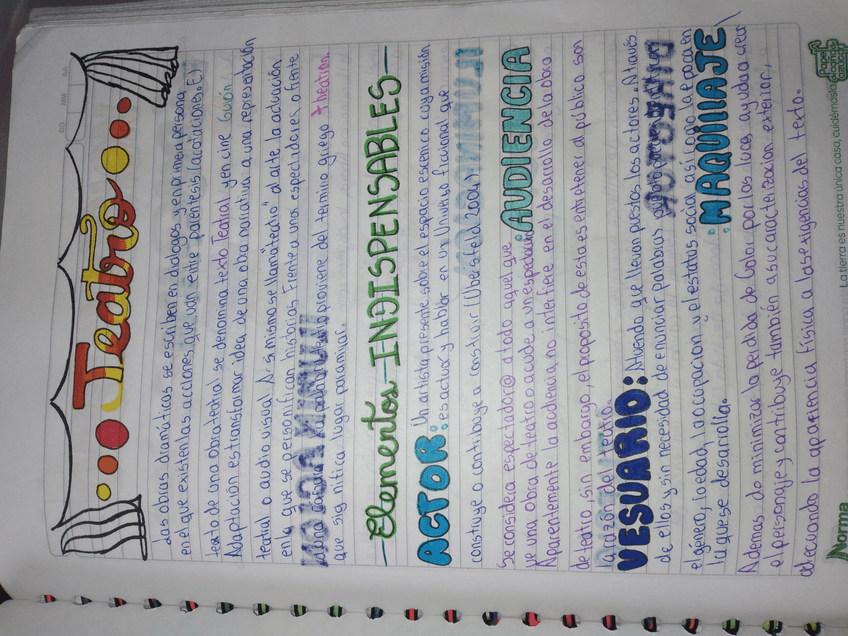 Teatro
Las obras dramáticas se escriben en dialogos y en primea persona,
en el que existen las acciones que van entre parentesis (acotaciones). El
texto de una obra teatral se denomina texto Teatral y en cine Guión
Adaptación es transformar idea de una obra narrativa a una representación
teatral o audio visual. A si mismo se llama "teatro" al arte la actuación
en la que se personifican historias frente a unos espectadores o frente
proviene del termino griego Theatron.
que significa lugar para mirar.
Elementos INDISPENSABLES
ACTOR: Un artista presente sobre el espacio escenico cuya misión
es actuar y hablar en un Universo ficcional que
construye o contribuye a construir (Ubersfeld 2004)
Se considera espectador@ a todo aquel que :AUDIENCIA
ve una obra de teatro o acude a un
Aparentemente la audiencia no interfiere en el desarrollo de la obra
de teatro, sin embargo, el proposito de esta es entretener al público son
la razón del teatro.
VESUARIO: Atuendo que llevan puestos los actores. Através
de ellos y sin necesidad de enunciar palabras
el género, la edad, la ocupacion y el estatus social así como la epoca en
la que se desarrolla. :MAQUILLAJE
Ademas de minimizar la perdida de Color por las luces ayuda a crear
el personaje y contribuye también a su caracterización exterior,
adecuando la apariencia física a las exigencias del texto.
Norma
La tierra es nuestra única casa, cuidémosla